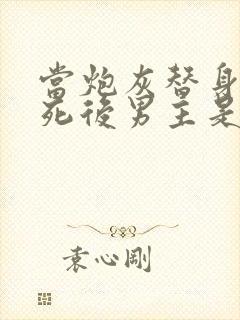 當炮灰替身
死後男主是
袁心剛